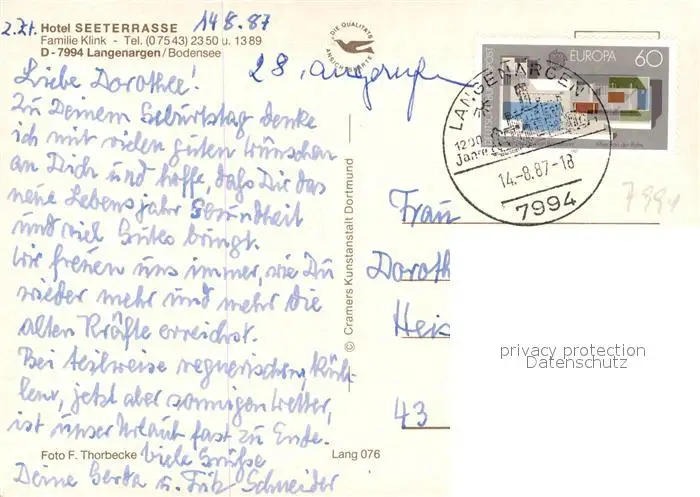 z.Zt. Hotel SEETERRASSE 14.8.87
Familie Klink - Tel. (0 75 43) 23 50 u. 13 89
D-7994 Langenargen/Bodensee
DIE QUALITÄTS
ANSICHTSKARTE
28. angerufen
EUROPA 60
LANGENARGEN
1200
Jahre
14.-8.87-18
7994
7994
Liebe Dorothee!
Zu Deinem Geburtstag denke
ich mit vielen guten Wünschen
an Dich und hoffe, daß Dir das
neue Lebensjahr Gesundheit
und viel Gutes bringt.
Wir freuen uns immer, wie Du
wieder mehr und mehr die
alten Kräfte erreichst.
Bei teilweise regnerischem, küh-
lem, jetzt aber sonnigem Wetter,
ist unser Urlaub fast zu Ende.
Viele Grüße
Deine Gerda u. Fritz Schneider
Foto F. Thorbecke
Lang 076
© Cramers Kunstanstalt Dortmund
Frau
Doroth
Hei
43
privacy protection
Datenschutz